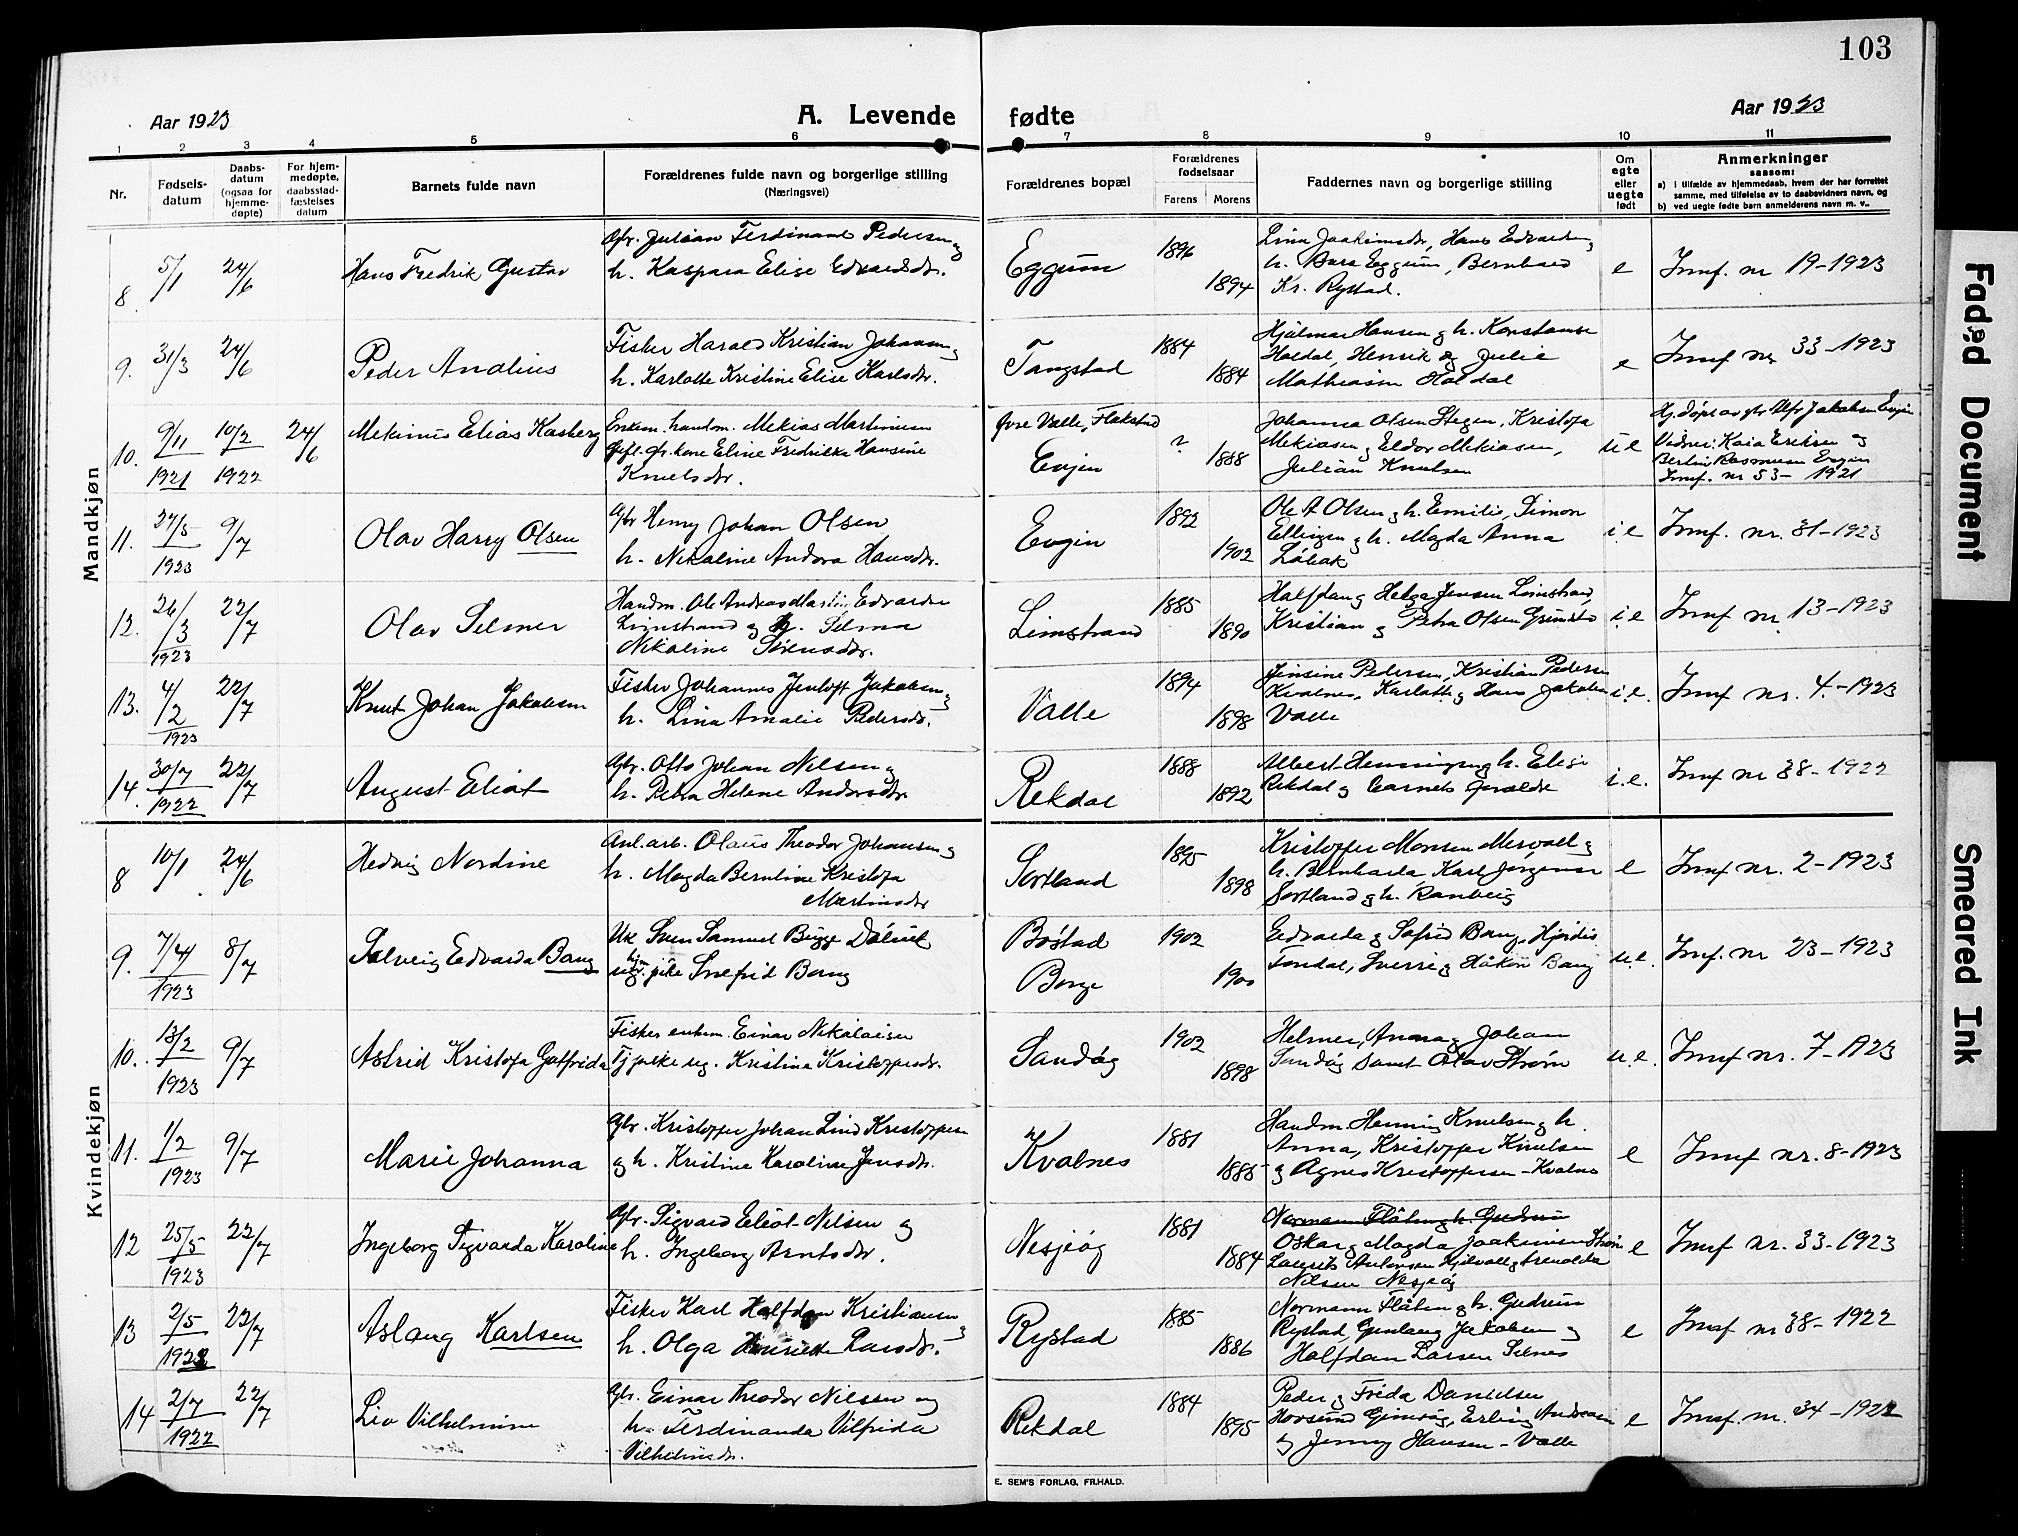 103
Aar 1923
A. Levende fødte
Aar 1923
1 2 3 4 5 6 7 8 9 10 11
Nr.
Fødsels-
datum
Daabs-
datum
(ogsaa for
hjemme-
døpte)
For hjem-
medøpte,
daabsstad-
fæstelses
datum
Barnets fulde navn
Forældrenes fulde navn og borgerlige stilling
(Næringsvei)
Forældrenes bopæl
Forældrenes
fødselsaar
Farens Morens
Faddernes navn og borgerlige stilling
Om
egte
eller
uegte
født
Anmerkninger
saasom:
a) i tilfælde av hjemmedaab, hvem der har forrettet
samme, med tilføielse av to daabsvidners navn, og
b) ved uegte fødte barn anmelderens navn m. v..
Mandkjøn
8 5/1 24/6 Hans Fredrik Gustav
Gbr. Julian Ferdinand Pedersen og
h. Kaspara Elise Edvardsdr.
Eggum 1896 1894
Lina Joakimsdr, Hans Edvardsen
h. Sara Eggum, Bernhard
Kr. Rystad.
e Innf. nr 19-1923
9. 31/3 24/6 Peder Andlius
Fisker Harald Kristian Johansen og
h. Karlotte Kristine Elise Karlsdr.
Tangstad 1884 1884
Hjalmar Hansen og h. Konstanse
Holdal, Henrik og Julie
Mathiasen Holdal
e Innf nr 33-1923
10. 9/11 1921 10/2 1922 24/6 Mekinus Elias Kasberg
Enkem. handm. Mekias Martinusen
Gift. gbr. kone Eline Fredrikke Hansine
Knutsdr.
Øvre Valle, Flakstad
Evjen ? 1888
Johanna Olsen Stegen, Kristofa
Mekiasen og Eldor Mekiasen,
Julian Knutsen
u e
Hj. døpt av gbr Alfr Jakobsen Evjen
Vidner: Kaia Eriksen og
Bertin Rasmussen Evjen
Innf. nr 53-1921
11. 27/5 1923 9/7 Olav Harry Olsen
Gbr Henry Johan Olsen
h. Nikoline Andora Hansdr.
Evjen 1892 1902
Ole A Olsen og h. Emilie, Simon
Ellingsen og h. Magda Anna
i e Innf. nr. 31-1923
12. 26/3 1923 22/7 Olav Selmer
Handm. Ole Andreas Martin Edvardsen
Limstrand og h. Selma
Nikoline Sørensdr.
Limstrand 1885 1890
Halfdan og Helga Jensen Limstrand,
Kristian og Petra Olsen Grimsta
i e Innf nr 13-1923
13. 4/2 1923 22/7 Knut Johan Jakobsen
Fisker Johannes Jentoft Jakobsen og
h. Lina Amalie Pedersdr.
Valle 1894 1898
Jensine Pedersen, Kristian Pedersen
Kvalnes, Karlotte og Hans Jakobsen
Valle
i.e. Innf nr. 4.-1923
14. 30/7 1922 22/7 August Eliot
Gbr. Otto Johan Nilsen og
h. Petra Helene Andersdr.
Rekdal 1888 1892
Albert Henningsen og h. Elise
Rekdal og barnets forældre
i.e. Innf nr 38-1922
Kvindekjøn
8 10/1 24/6 Hedvig Nordine
Anl. arb. Olaus Theodor Johansen og
h. Magda Berntine Kristofa
Martinsdr
Sortland 1895 1898
Kristoffer Monsen Mervoll og
h. Bernharda Karl Jørgensen
Sortland og h. Ranveig
e Innf nr. 2-1923
9. 7/4 1923 8/7 Solveig Edvarda Bang
Uk Sven Samuel Bugge Dølvik
ug. hjm pike Snefrid Bang
Bøstad
Borge 1902 1900
Edvarda og Sofus Bang, Hjørdis
Tendal, Sverre og Håkon Bang
u.e. Innf. nr 23-1923
10. 13/2 1923 9/7 Astrid Kristofa Gotfrida
Fisker enkem. Einar Nikolaisen
Tj.pike ug. Kristina Kristoffersdr.
Sandøg 1902 1898
Helmer, Anna og Johan
Sandøg samt Olav Strøm
u.e. Innf nr. 7-1923
11. 1/2 1923 9/7 Marie Johanna
Gbr. Kristoffer Johan Lind Kristoffersen
og h. Kristine Karoline Jensdr.
Kvalnes 1881 1885
Handm. Henning Knutsen og h.
Anna, Kristoffer Knutsen
og Agnes Kristoffersen-Kvalnes
e Innf nr. 8-1923
12 25/5 1923 22/7 Ingeborg Sigvarda Karoline
Gbr. Sigvard Eliot Nilsen og
h. Ingeborg Arntsdr.
Nesjeøg 1881 1884
Normann Flåten og h. Gudrun
Oskar og Magda Joakimsen Strøm
Laurits Antonsen Hjelvoll og Arnolda
Nilsen Nesjeøg
e Innf nr. 33-1923
13 2/5 1922 22/7 Aslaug Karlsen
Fisker Karl Halfdan Kristiansen og
h. Olga Henriette Larsdr.
Rystad 1885 1886
Normann Flåten og h. Gudrun
Rystad, Gunlaug Jakobsen og
Halfdan Larsen Selnes
e Innf nr 38-1922
14 2/7 1922 22/7 Liv Vilhelmine
Gbr. Einar Theodor Nilsen og
h. Ferdinanda Vilfrida
Vilhelmsdr.
Rekdal 1884 1895
Peder og Frida Danielsen
Hovsund Gimsøy, Erling Andreassen
og Jenny Hansen-Valle
e Innf. nr. 34-1922
E. SEM'S FORLAG, FR.HALD.
Faded Document
Smeared Ink